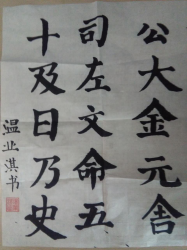 公大金元舍
司左文命五
十及日乃史
温业淇书